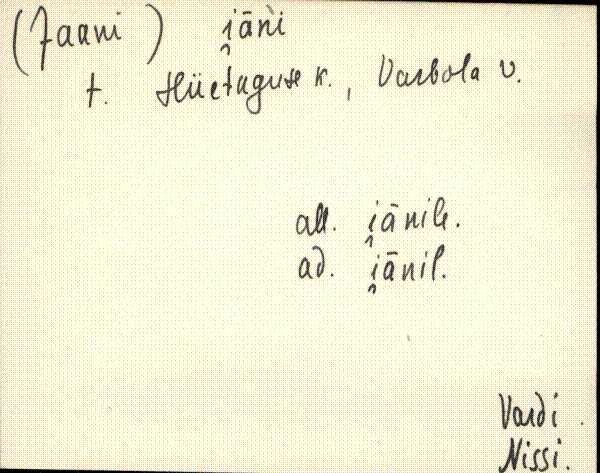 (Jaani) i̯āǹi
t. Hüetaguse k., Varbola v.
all. i̯ānile.
ad. i̯ānil.
Vardi
Nissi.